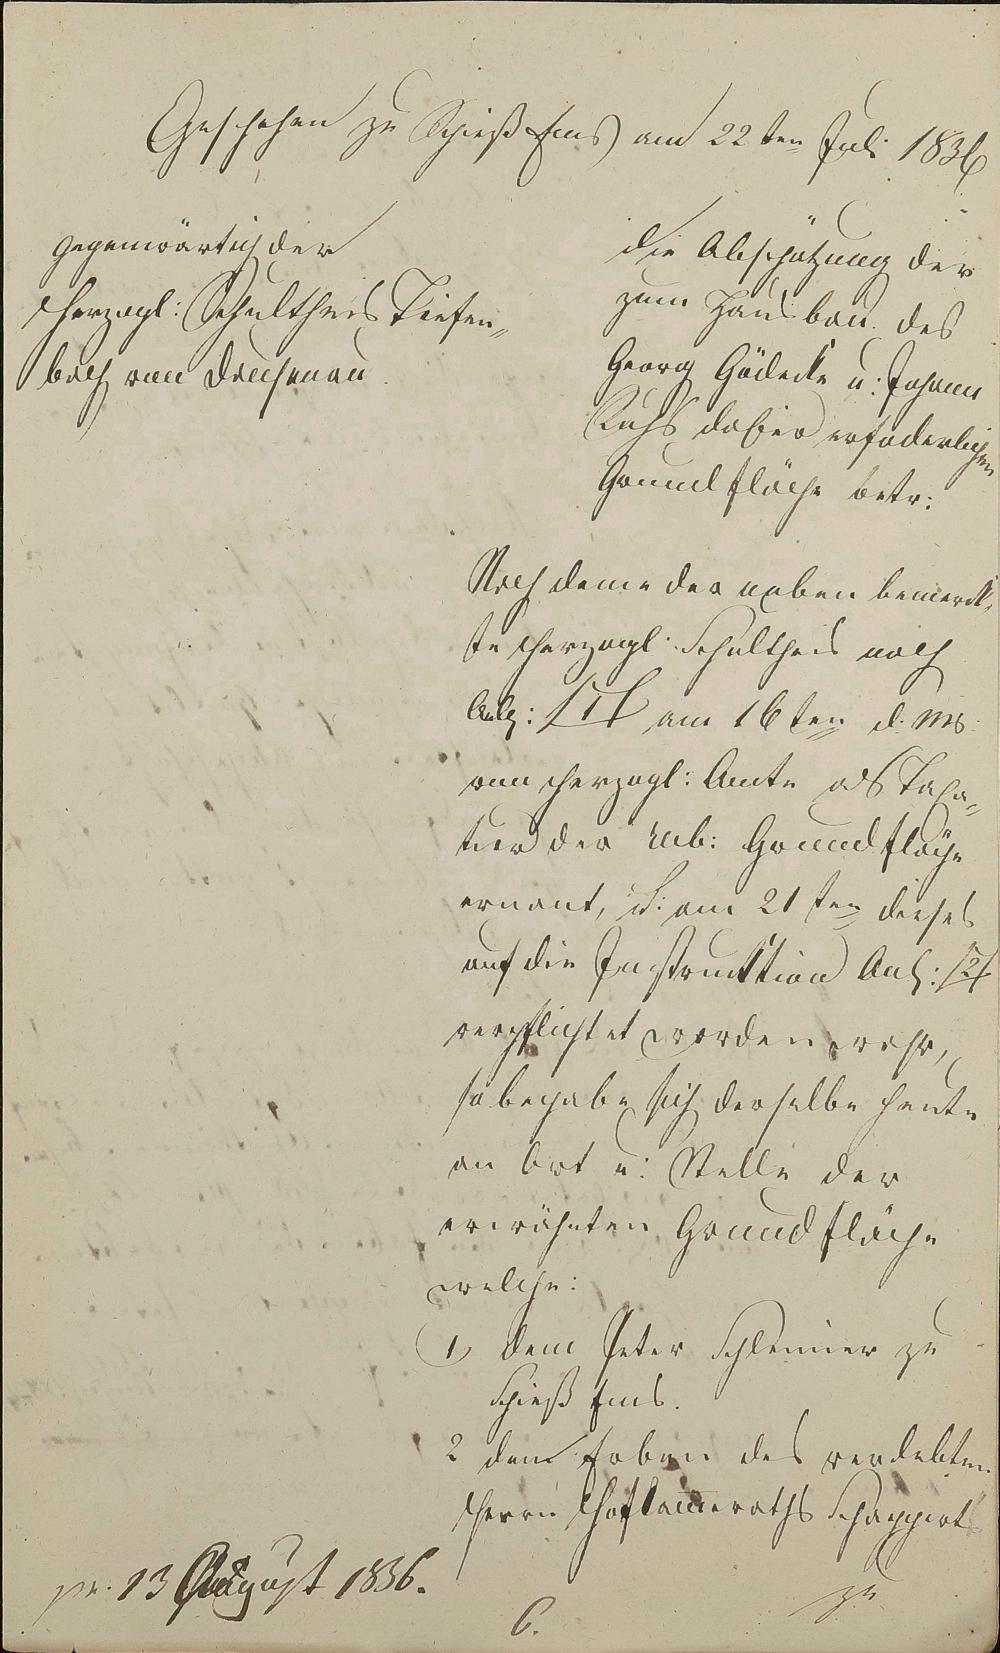 Geschehen zu Spieß Ems am 22ten Juli 1836
gegenwärtich der
Herzogl: Schultheis Tiefen„
bach von Dausenau.
die Abschätzung der
zum Hausbau des
Georg Gödecke u: Johann
Kuhs dahier erfoderlichen
Grundfläche betr:
Nach deme der neben bemerck„
te Herzogl: Schultheis nach
Anlg: /1/ am 16ten d: Ms.
von Herzogl: Amte als Taxa„
tor der rub: Grundfläche
ernant, u: am 21ten dieses
auf die Instrucktion Anl: /2/
verpflichtet worden wahr,
so begabe sich derselbe heute
an Ort u: Stelle der
erwähnten Grundfläche
welche:
1, dem Peter Schlemier zu
Spieß Ems.
2 den Erben des verlebten
Herrn Hofkammeraths
zu
pr. 13 August 1836.
6.